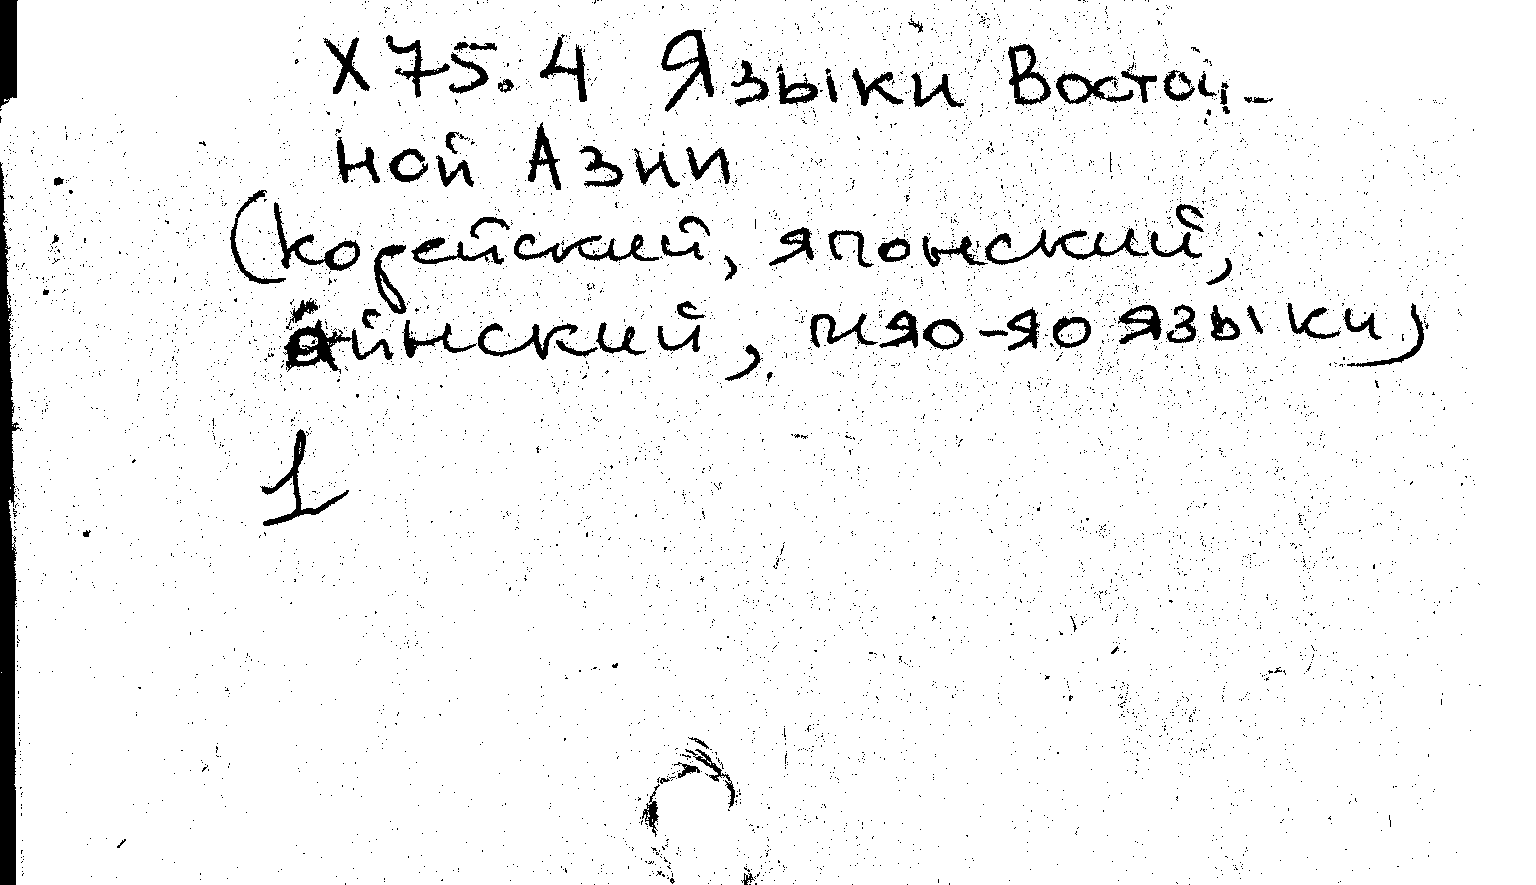 Х75.4 Языки Восточ-
ной Азии
(корейский, японский,
айнский, мяо-яо языки)
1